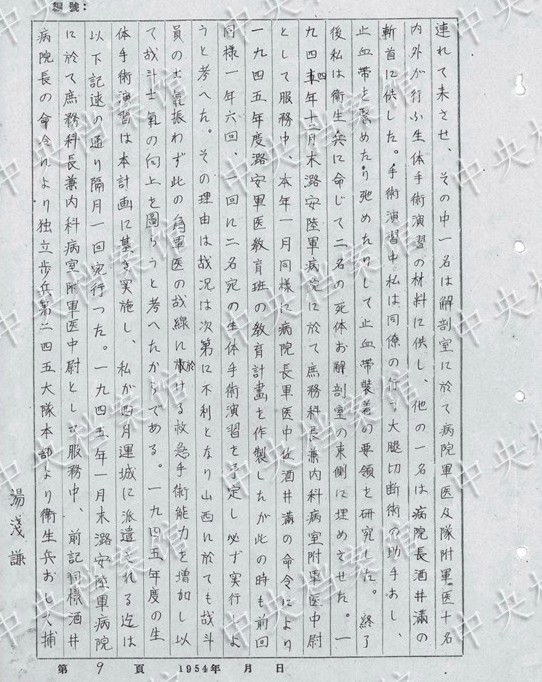 編號：
連れて来させ、その中一名は解剖室に於て病院軍医及隊附軍医十名
内外が行ふ生体手術演習の材料に供し、他の一名は病院長酒井満の
斬首に供した。手術演習中私は同僚の行ふ大腿切断術の助手おし、
止血帯を緊めたり弛めたりして止血帯装着の要領を研究した。終了
後私は衛生兵に命じて二名の死体お解剖室の東側に埋めさせた。一
九四四年十二月末潞安陸軍病院に於て庶務科長兼内科病室附軍医中尉
として服務中、本年一月同様に病院長軍医中佐酒井満の命令により
一九四五年度潞安軍医教育班の教育計畫を作製したが此の時も前回
同様一年六回、一回に二名宛の生体手術演習を予定し必ず実行しよ
うと考へた。その理由は战況は次第に不利となり山西に於ても战斗
員の士氣振わず此の為軍医の战線に於ける救急手術能力を増加し以
て战斗士氣の向上を圖らうと考へたからである。一九四五年度の生
体手術演習は本計画に基き実施し、私が四月運城に派遣される迄は
以下記述の通り隔月一回宛行つた。一九四五年一月末潞安陸軍病院
に於て庶務科長兼内科病室附軍医中尉として服務中、前記同様酒井
病院長の命令により独立歩兵第二四五大隊本部より衛生兵おして捕
湯浅謙
第 9 頁 1954年 月 日
中央档案馆